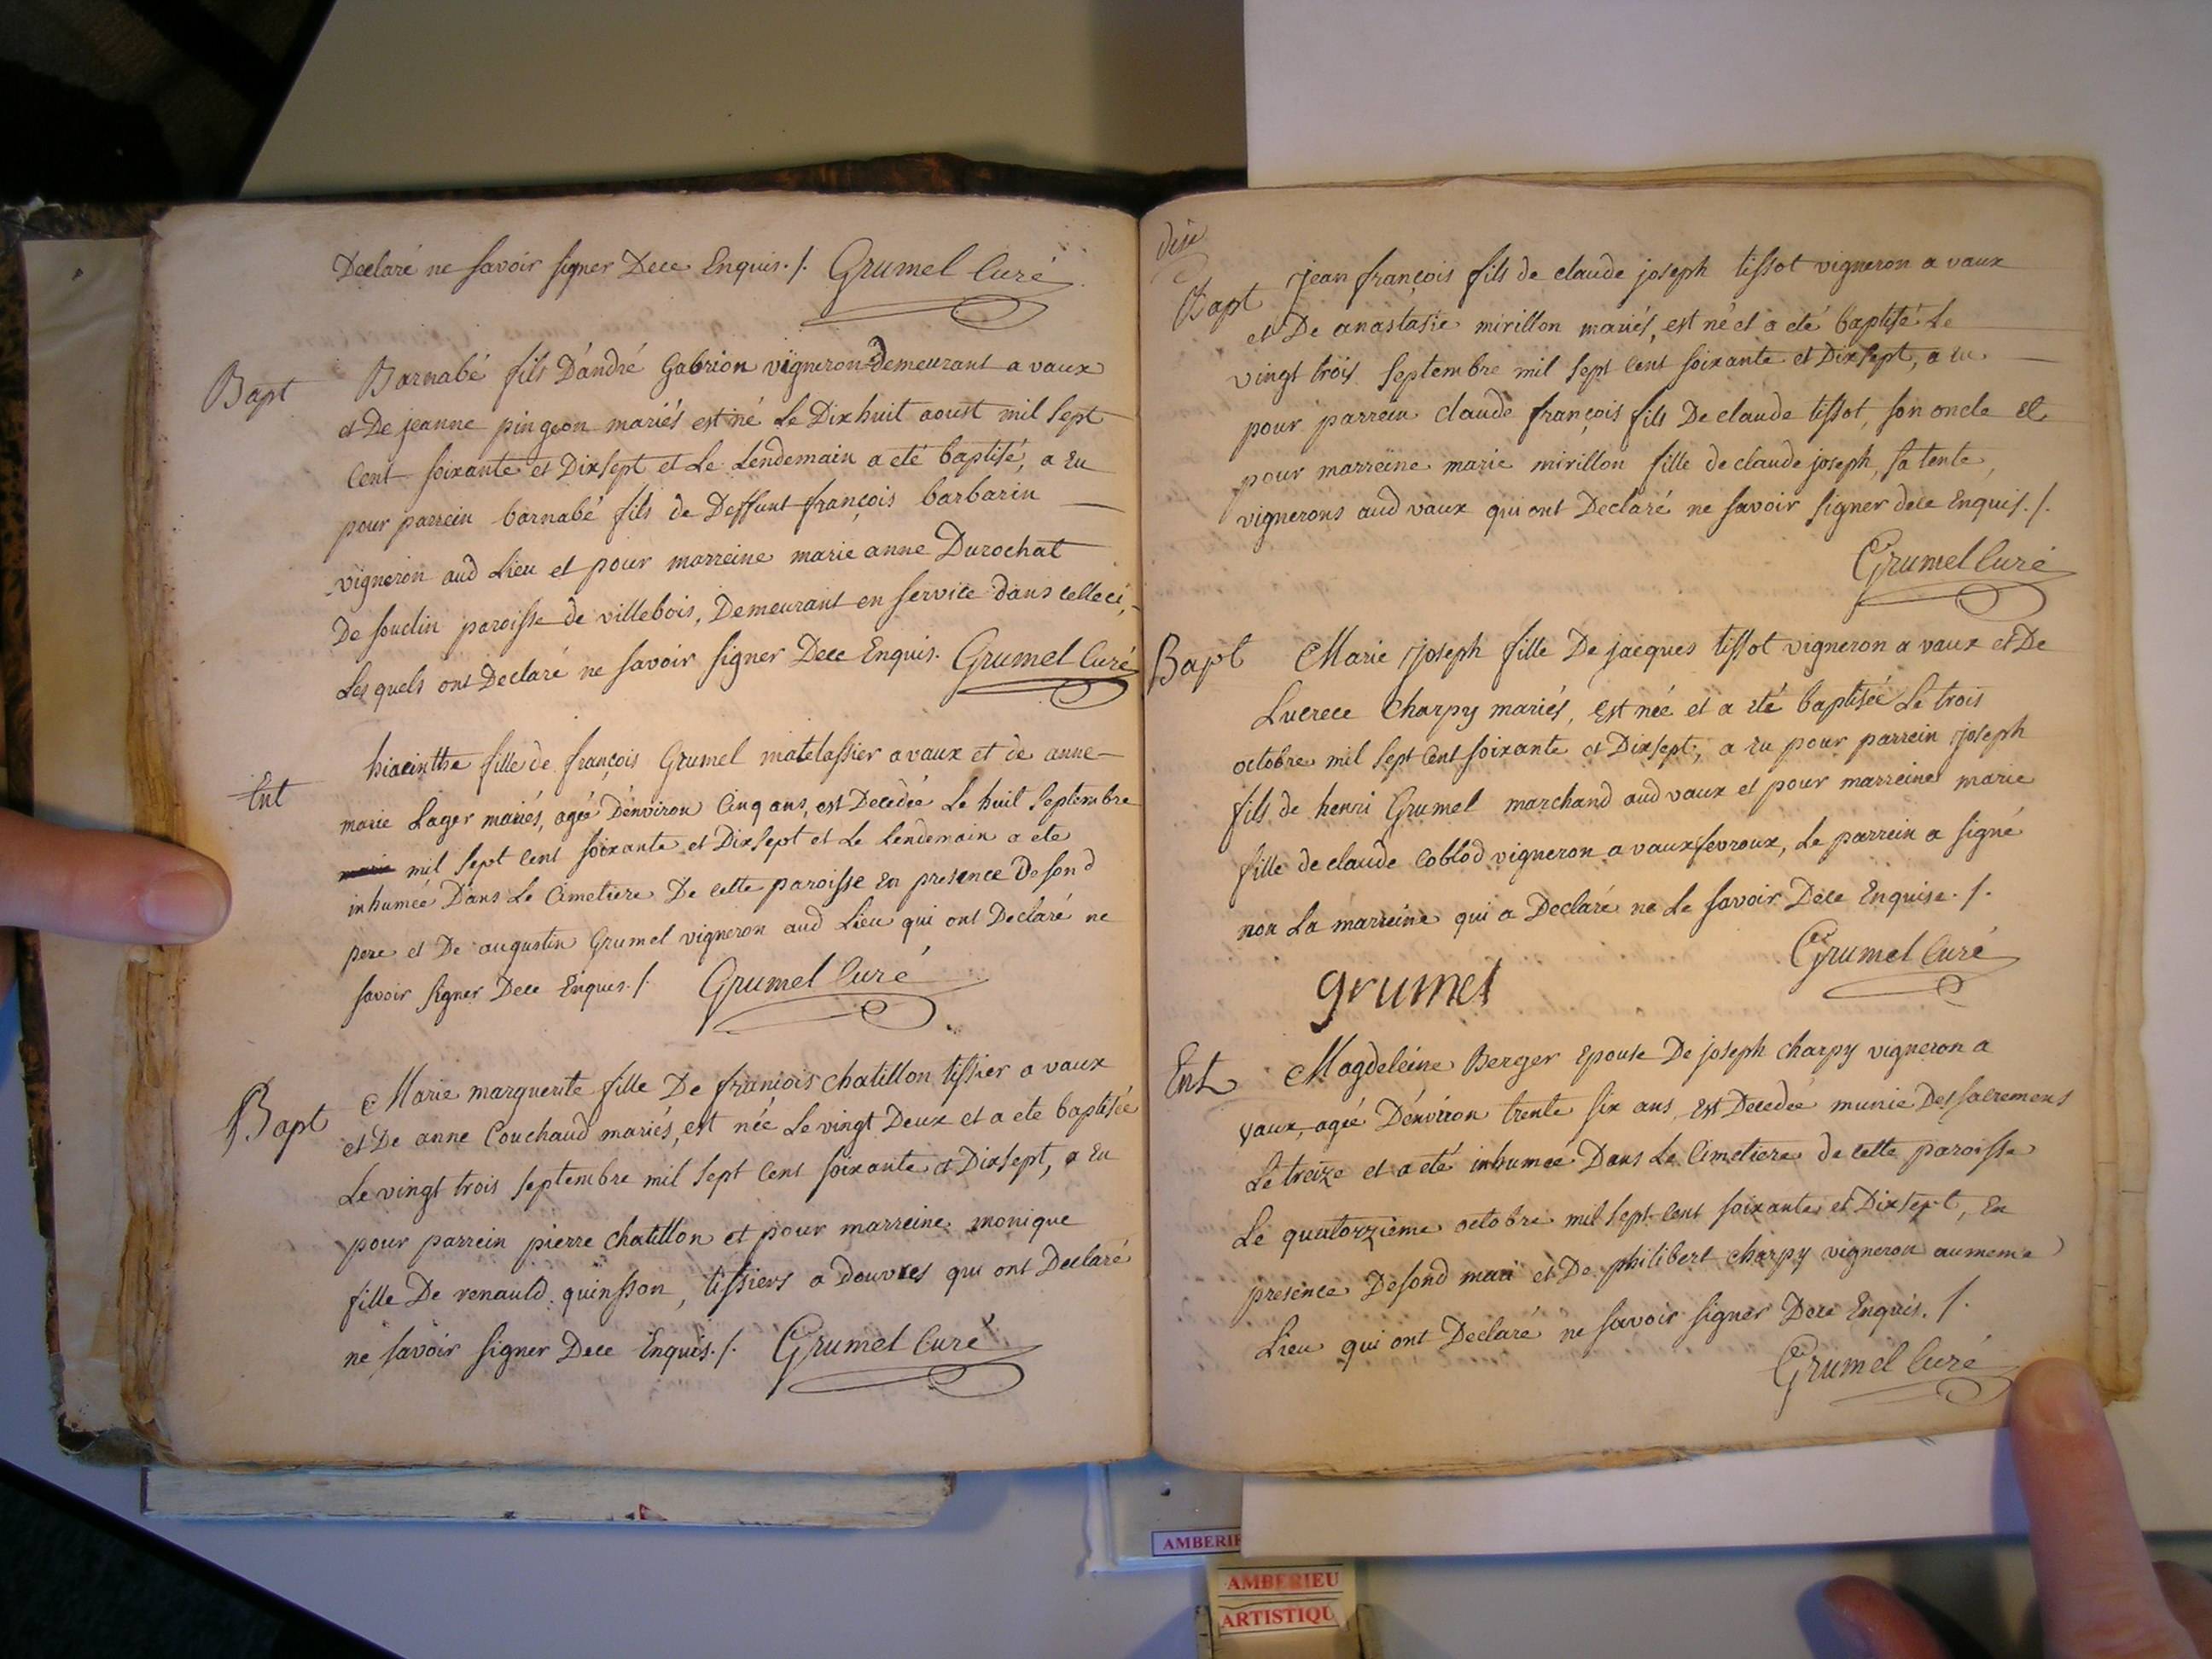 Declaré ne savoir signer Dece Enquis./. Grumel Curé
Bapt Barnabé fils D'andré Gabrion vigneron demeurant a vaux
et De jeanne pingeon mariés est né Le Dixhuit aoust mil Sept
Cent soixante et Dixsept et Le Lendemain a eté baptisé, a Eu
pour parrein barnabé fils de Deffunt françois barbarin
vigneron aud Lieu et pour marreine marie anne Durochat
De souclin paroisse de villebois, Demeurant en service dans celleci,
Lesquels ont Declaré ne savoir signer Dece Enquis. Grumel Curé
Ent hiacinthe fille de françois Grumel matelassier a vaux et de anne
marie Lager mariés, agée D'environ Cinq ans, est Decedée Le huit Septembre
mil Sept Cent soixante et Dixsept et Le Lendemain a ete
inhumée Dans Le Cimetiere De cette paroisse En presence De sond
pere et De augustin Grumel vigneron aud Lieu qui ont Declaré ne
savoir signer Dece Enquis./. Grumel Curé
Bapt Marie marguerite fille De francois chatillon tissier a vaux
et De anne Couchaud mariés, est née Le vingt Deux et a eté baptisée
Le vingt trois septembre mil Sept Cent soixante et Dixsept, a Eu
pour parrein pierre chatillon et pour marreine monique
fille De renauld quinsson, tissiers a douvres qui ont Declaré
ne savoir signer Dece Enquis./. Grumel Curé
Bapt Jean françois fils de claude joseph tissot vigneron a vaux
et De anastasie mirillon mariés, est né et a eté baptisé Le
vingt trois Septembre mil Sept Cent soixante et Dixsept, a Eu
pour parrein claude françois fils De claude tissot, son oncle et
pour marreine marie mirillon fille de claude joseph, sa tente,
vignerons aud vaux qui ont Declaré ne savoir signer dece Enquis./.
Grumel Curé
Bapt Marie Joseph fille De jacques tissot vigneron a vaux et De
Lucrece Charpy mariés, est née et a eté baptisée Le trois
octobre mil Sept Cent soixante et Dixsept, a Eu pour parrein Joseph
fils de henri Grumel marchand aud vaux et pour marreine marie
fille de claude Coblod vigneron a vauxfevroux, Le parrein a signé
non La marreine qui a Declaré ne Le savoir Dece Enquise./.
Grumel Curé
grumel
Ent Magdeleine Berger Epouse De joseph charpy vigneron a
vaux, agée D'environ trente six ans, Est Decedée munie Des sacremens
Le treize et a eté inhumée Dans Le Cimetiere de cette paroisse
Le quatorzieme octobre mil Sept Cent soixante et Dixsept, En
presence De sond mari et De philibert charpy vigneron au meme
Lieu qui ont Declaré ne savoir signer Dece Enquis./.
Grumel Curé
AMBERIEU
ARTISTIQU